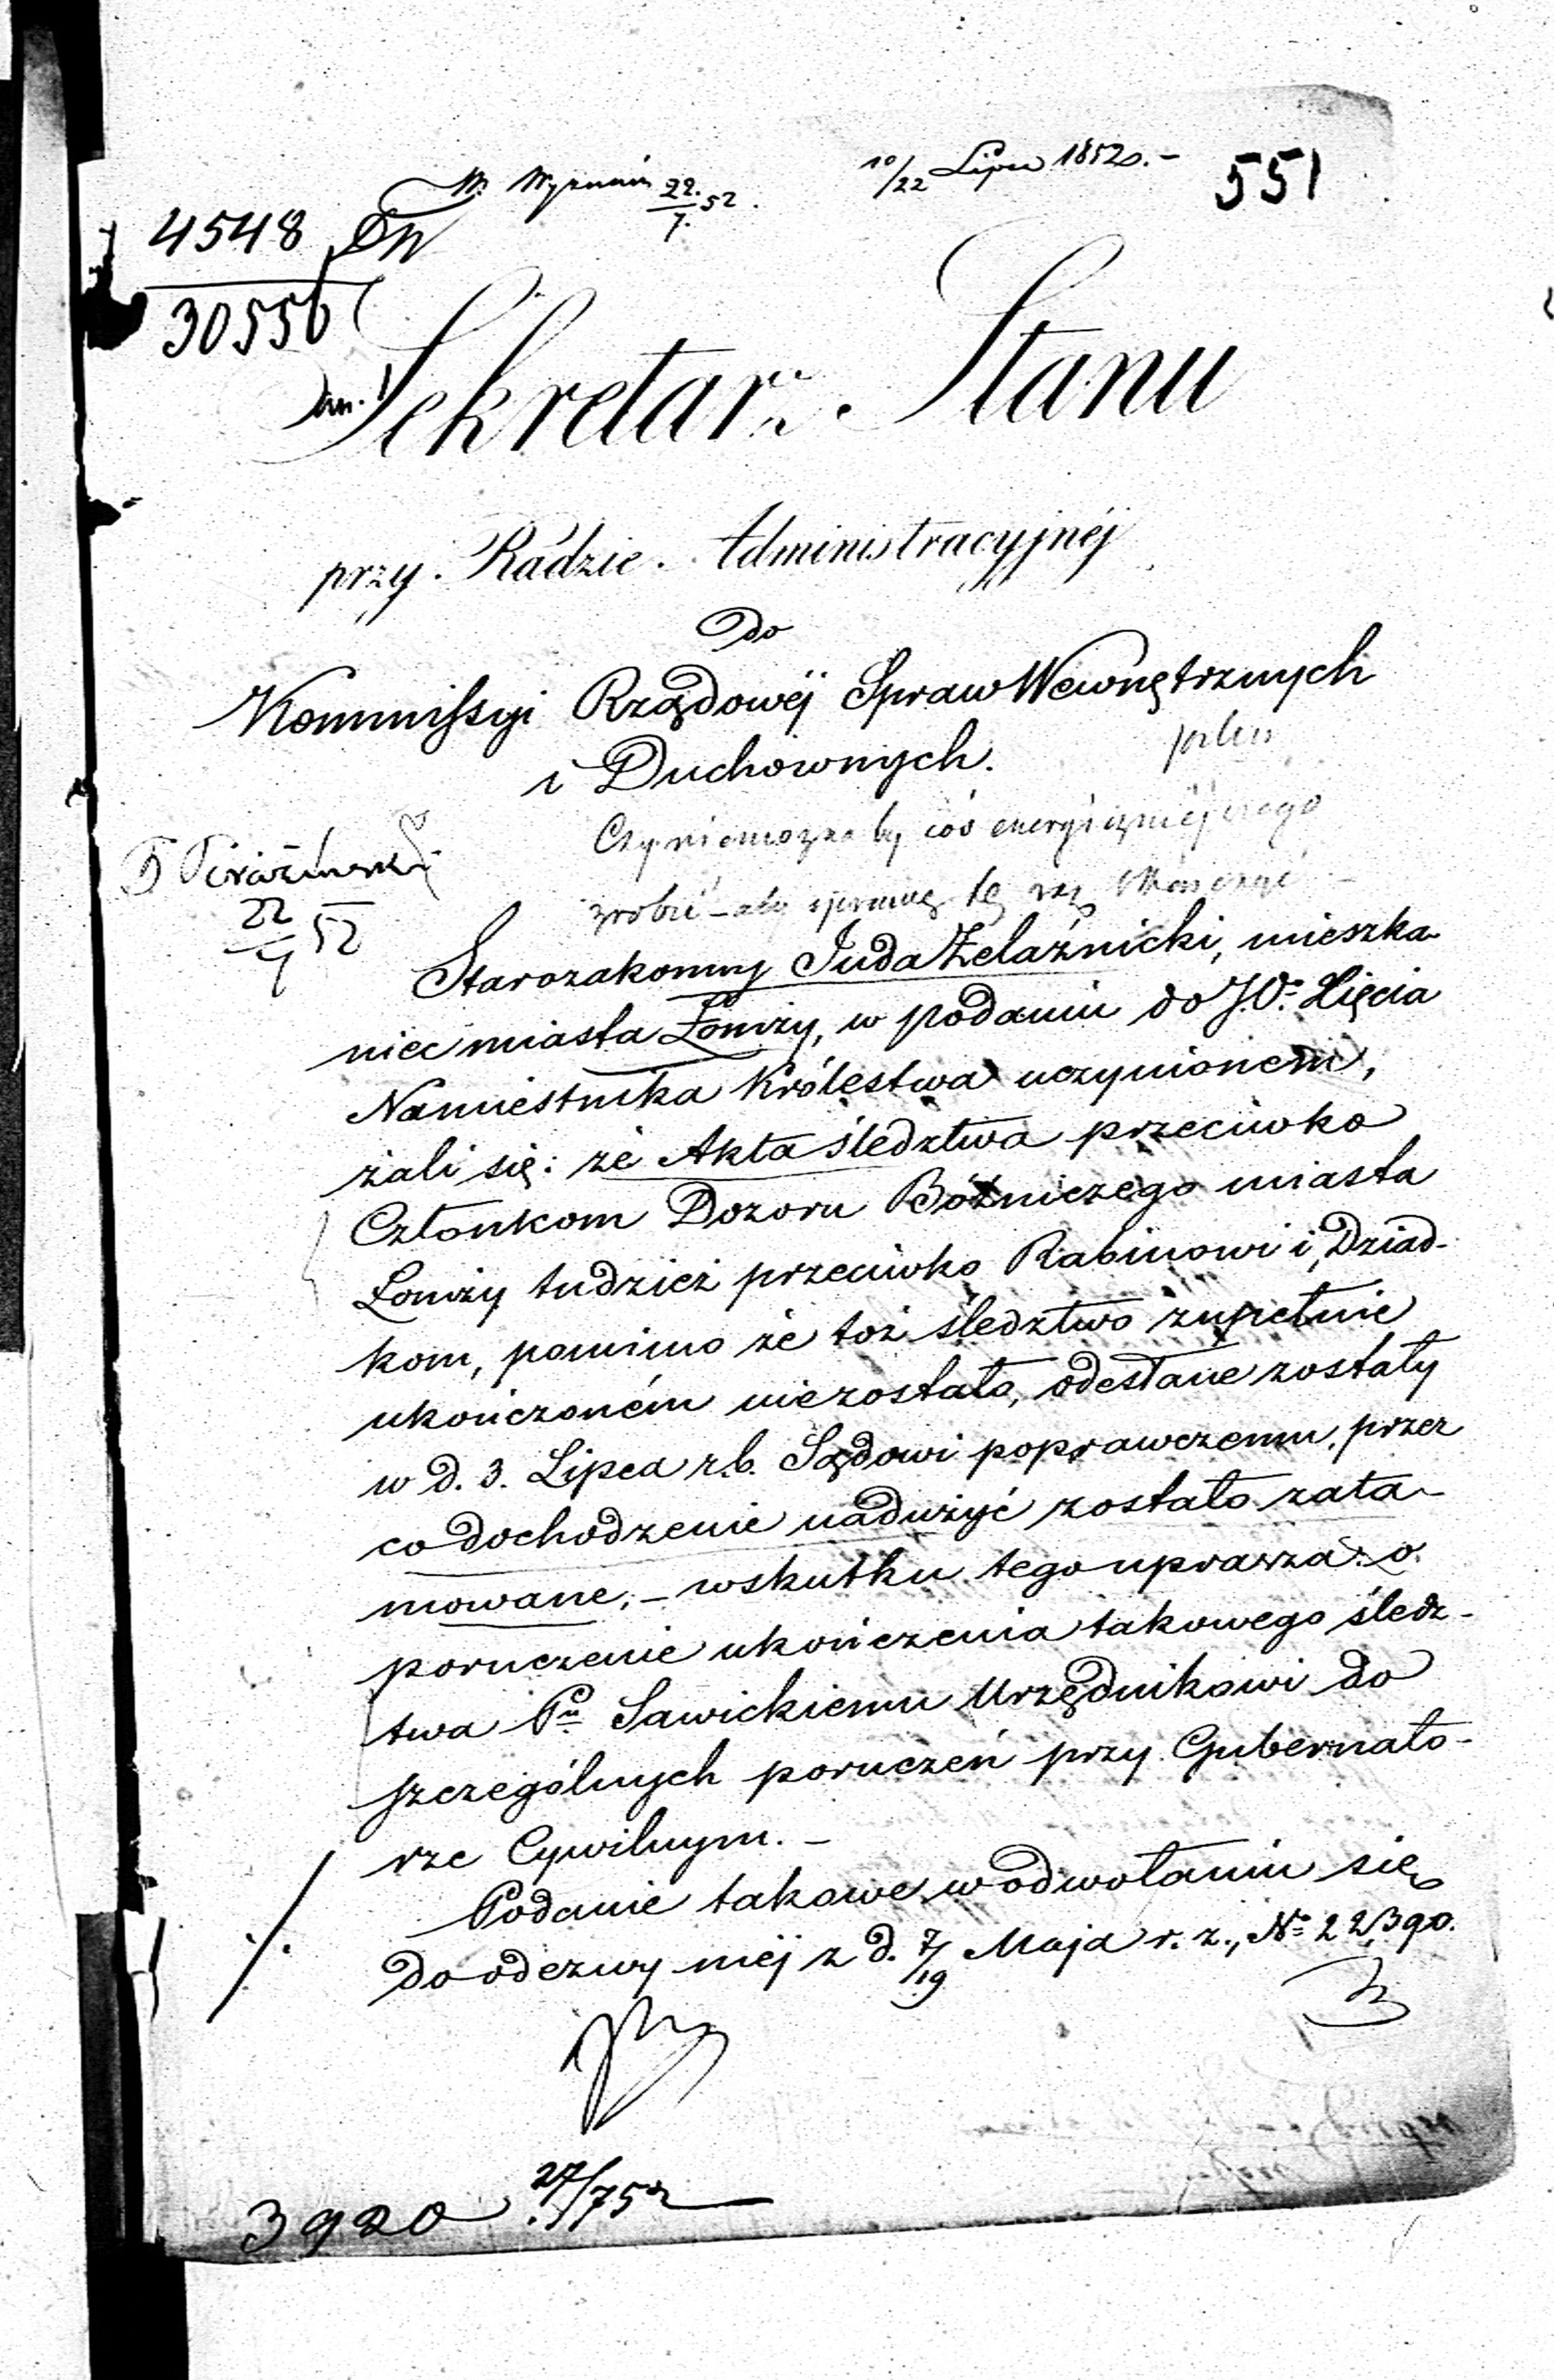 10/22 Lipca 1852 r. –
551
W. 22./7. 52.
4548
30556
Sekretarz Stanu
przy Radzie Administracyjnéj
Do
Kommissyi Rządowéj Spraw Wewnętrznych
i Duchownych.
pilne
Czy niemożna by coś energiczniejszego
zrobić – aby sprawę tę raz skończyć –
22/7 52
Starozakonny Juda Żelaźnicki, mieszka-
niec miasta Łomży, w podaniu do J.O. Xięcia
Namiestnika Królestwa uczynionem,
żali się: że Akta śledztwa przeciwko
Członkom Dozoru Bóżniczego miasta
Łomży tudzież przeciwko Rabinowi i Dziad-
kom, pomimo że toż śledztwo zupełnie
ukończoném niezostało, odesłane zostały
w d. 3. Lipca r.b. Sądowi poprawczemu, przez
co dochodzenie nadużyć zostało zata-
mowane; – wskutku tego uprasza: o
poruczenie ukończenia takowego śledz-
twa Pu Sawickiemu Urzędnikowi do
szczególnych poruczeń przy Gubernato-
rze Cywilnym. –
Podanie takowe w odwołaniu się
do odezwy méj z d. 7/19 Maja r. z., No 22,390.
3920 27/7 52